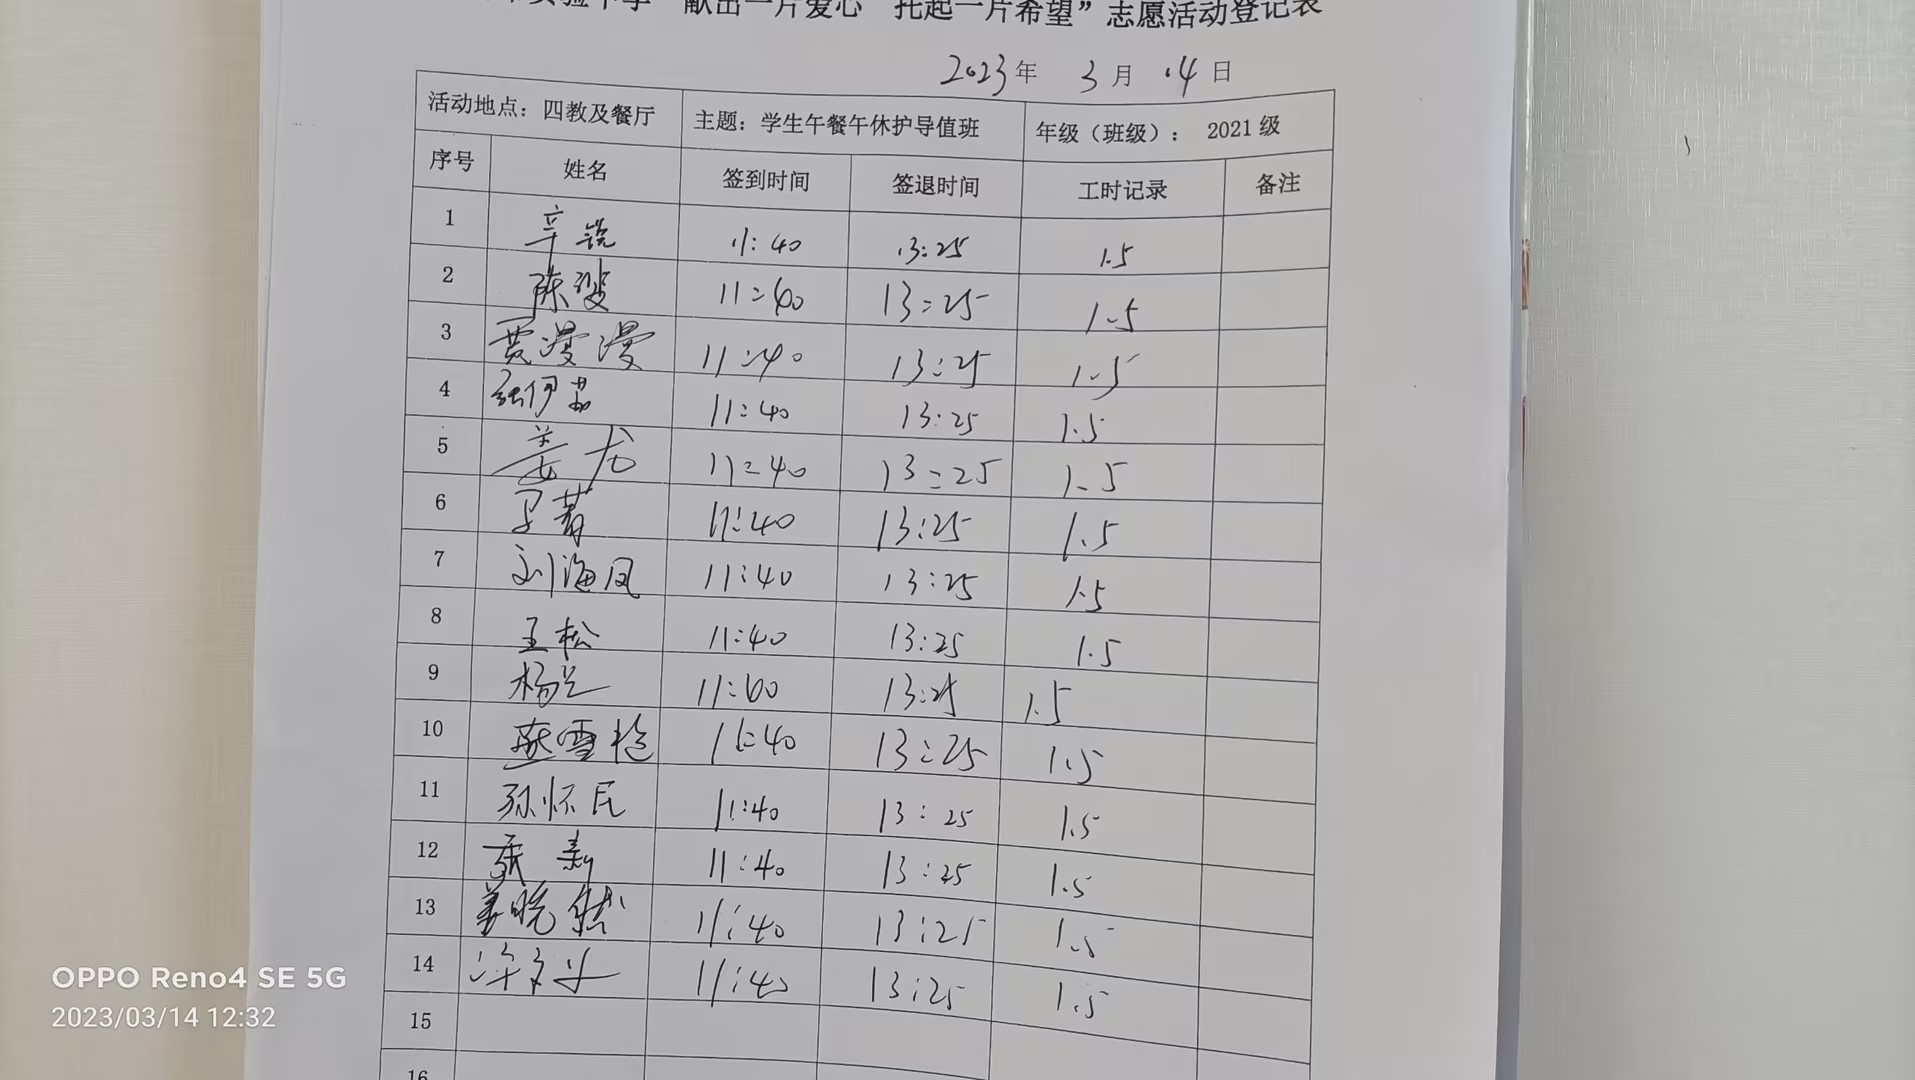 实验中学“献出一片爱心 托起一片希望”志愿活动登记表
2023年 3月 14日
活动地点：四教及餐厅 主题：学生午餐午休护导值班 年级（班级）： 2021级
序号 姓名 签到时间 签退时间 工时记录 备注
1 辛锐 11:40 13:25 1.5
2 陈斐 11:40 13:25 1.5
3 贾漫漫 11:40 13:25 1.5
4 张伊茹 11:40 13:25 1.5
5 姜龙 11:40 13:25 1.5
6 11:40 13:25 1.5
7 刘海凤 11:40 13:25 1.5
8 王松 11:40 13:25 1.5
9 杨 11:40 13:25 1.5
10 燕雪松 11:40 13:25 1.5
11 孙怀民 11:40 13:25 1.5
12 张 11:40 13:25 1.5
13 姜晓 11:40 13:25 1.5
14 11:40 13:25 1.5
15
16
OPPO Reno4 SE 5G
2023/03/14 12:32